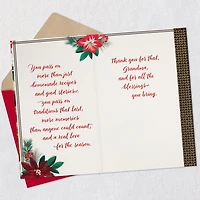 You pass on
more than just
homemade recipes
and good stories—
you pass on
traditions that last,
more memories
than anyone could count,
and a real love
for the season.
Thank you for that,
Grandma,
and for all the
blessings
you bring.